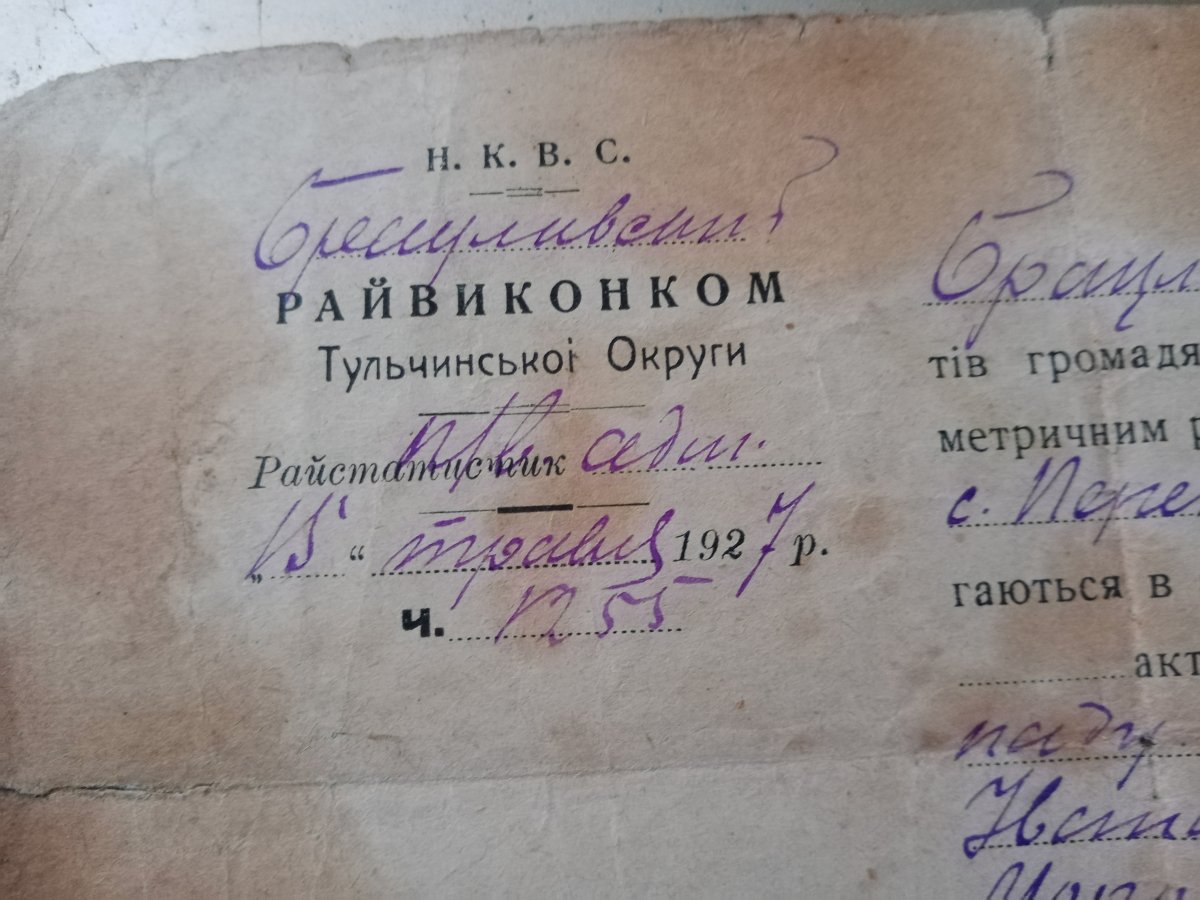 Н. К. В. С.
Брацлавский
РАЙВИКОНКОМ
Тульчинськоі Округи
Райстатистик адм.
„15“ травня 1927 р.
Ч. 1255
Брацл
тів громадя
метричним р
с. Пере
гаються в
акт
паду